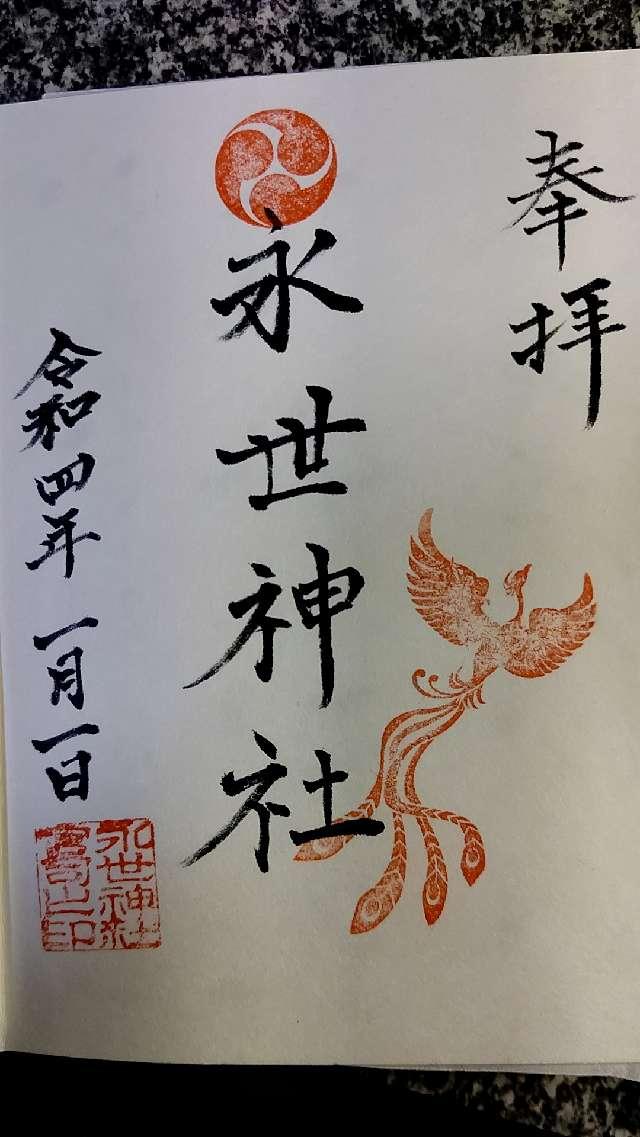 奉拝
永世神社
令和四年一月一日
永世神社